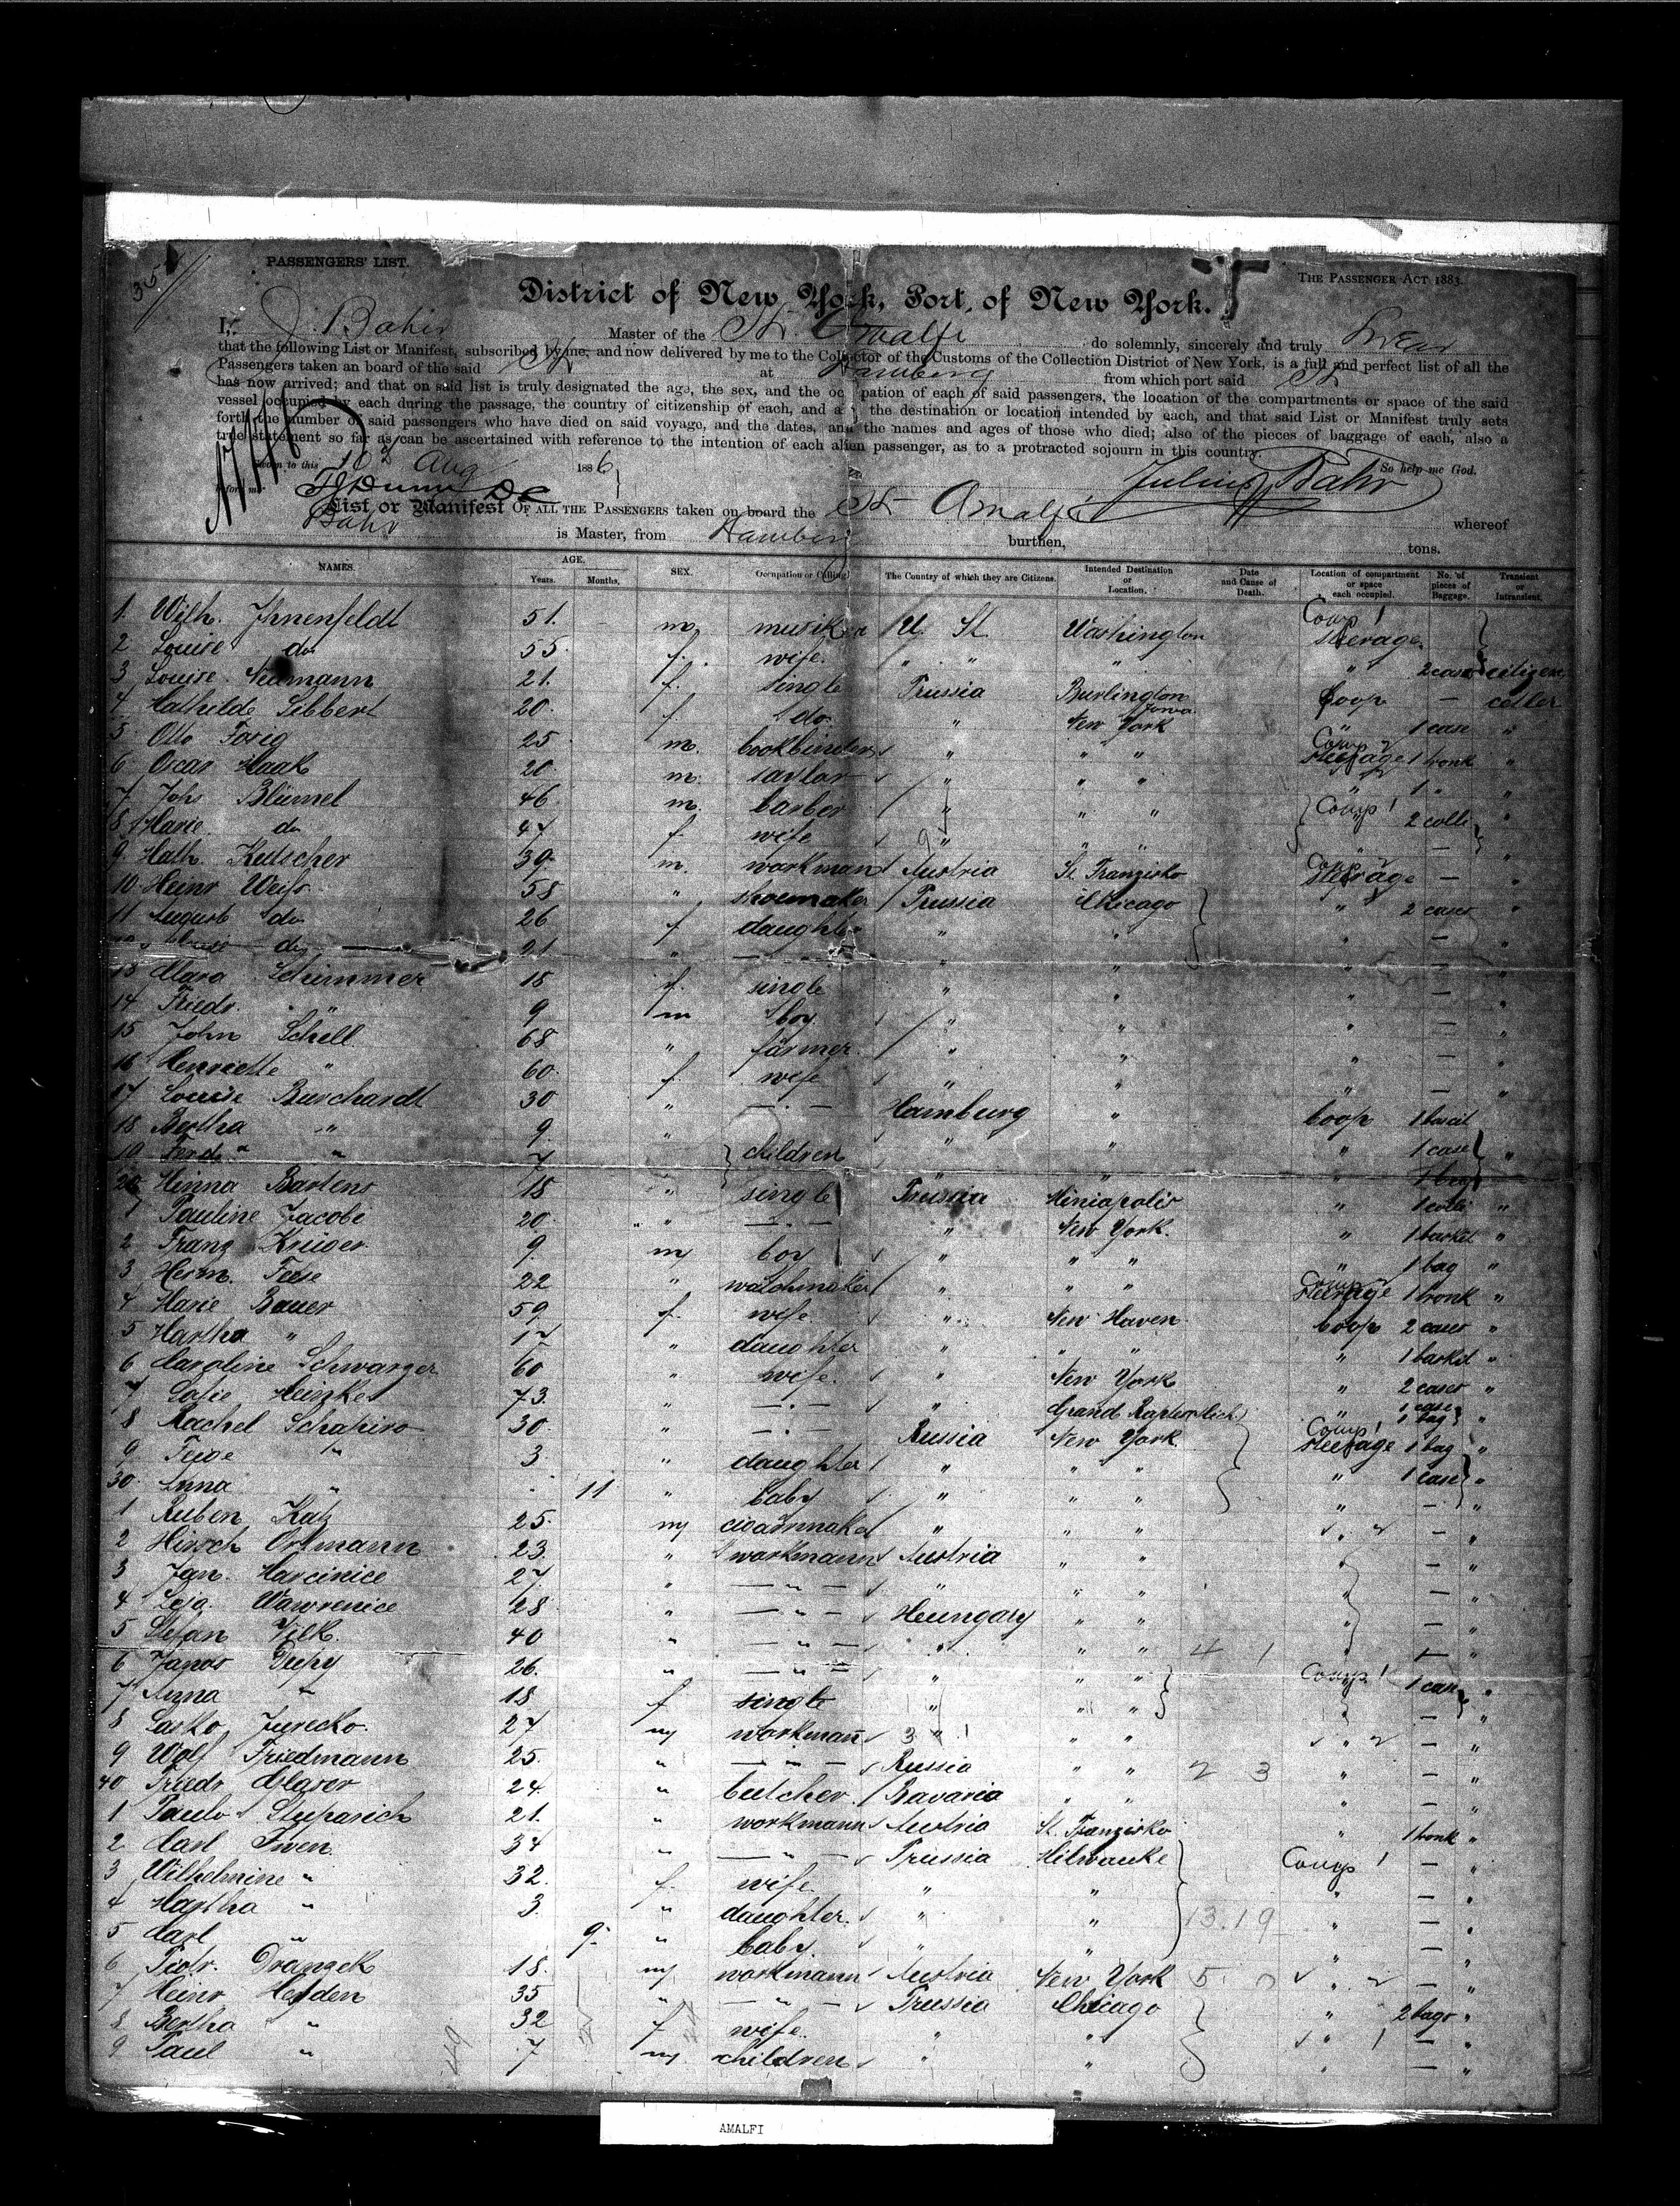 PASSENGERS' LIST.
THE PASSENGER ACT 1883.
District of New York, Port of New York.
I, J. Bahr Master of the St. Amalfi do solemnly, sincerely and truly Swear
that the following List or Manifest, subscribed by me, and now delivered by me to the Collector of the Customs of the Collection District of New York, is a full and perfect list of all the
Passengers taken on board of the said St at Hamburg from which port said St
has now arrived; and that on said list is truly designated the age, the sex, and the oc pation of each of said passengers, the location of the compartments or space of the said
vessel occupied by each during the passage, the country of citizenship of each, and a the destination or location intended by each, and that said List or Manifest truly sets
forth the number of said passengers who have died on said voyage, and the dates, and the names and ages of those who died; also of the pieces of baggage of each, also a
true statement so far as can be ascertained with reference to the intention of each alien passenger, as to a protracted sojourn in this country.
Sworn to this 10 Aug 1886 So help me God.
before me Julius Bahr
List or Manifest OF ALL THE PASSENGERS taken on board the St Amalfi whereof
Bahr is Master, from Hamburg burthen, tons.
NAMES. AGE. Years. Months. SEX. Occupation or Calling. The Country of which they are Citizens. Intended Destination or Location. Date and Cause of Death. Location of compartment or space each occupied. No. of pieces of Baggage. Transient or Intransient.
1. Wilh. Ihnenfeldt 51. m. U. St. Washington Comp 1 Steerage
2 Louise do 55 f. wife " " " " 2 cases citizens
3 Louise Neumann 21. f. single Prussia Burlington Iowa Coop —
4 Mathilde Sibbert 20. f. do " New York " 1 case "
5 Otto Forig 25 m. bookbinder " " " Comp 2 Steerage 1 tronk "
6 Oscar Haak 20 m. " " " " 1 " "
7 Joh. Blümel 46 m. barber " " " Comp 1 2 colli "
8 Marie do 47 f. wife " " " " —
9 Math. Kutscher 39 m. workman Austria St. Franzisko Comp 2 Steerage — "
10 Heinr Weiss 58 " shoemaker Prussia Chicago " 2 cases "
11 August do 26 f daughter " " " — "
do 21 " — " — " " " — "
13 Clara Schimmer 18 f. single " " " — "
14 Friedr. " 9 m boy " " " — "
15 John Schell 68 " farmer " " " — "
16 Henriette " 60 f. wife " " " — "
17 Louise Burchardt 30 " — " — Hamburg " Coop
18 Bertha " 9 " children " " " 1 case "
19 Ferd. " 7
20 Minna Bartens 18 " single Prussia Miniapolis " 1 colli "
1 Pauline Jacobi 20 " — " — " New York. " 1 basket "
2 Franz Krüger 9 m boy " " " " 1 bag "
3 Herm. Feese 22 " watchmaker " " " Comp 2 Steerage 1 tronk "
4 Marie Bauer 59 f. wife " New Haven Coop 2 cases "
5 Martha " 17 " daughter " " " " 1 basket "
6 Caroline Schwarzer 60 " wife. " New York " 2 cases "
7 73 " — " — " Grand Rapids Mich. " 1 case 1 bag "
8 Rachel Schapiro 30 " — " — Russia New York Comp 1 Steerage 1 bag "
9 Feige " 3 " daughter " " " " 1 case "
30 Anna " 11 " baby " " " " — "
1 Ruben Katz 25 m " " " " 2 — "
2 Hirsch Ortmann 23 " workmann Austria " " —
3 Jan. 27 " — " — " " " " — "
4 Wawrenice 28 " — " — Hungary " " " — "
5 Stefan Vilk 40 " — " — " " " 4 1 " — "
6 Janos 26. " — " — " " " Comp 1 1 case "
7 Anna " 18 f single " " " " — "
8 Jurecko 27 m workmann " " " " 2 — "
9 Wolf Friedmann 25. " — " — Russia " " 2 3 " — "
40 Friedr 24 " butcher Bavaria " " " — "
1 21. " workmann Austria St. Franzisko " 1 tronk "
2 Carl Iwen 34 " — " — Prussia Milwauke Comp 1 — "
3 Wilhelmine " 32. f. wife " " " — "
4 Martha " 3 " daughter. " " 13.19 " — "
5 Carl " 9 " baby. " " " — "
6 Piotr. Dranzek 18. m workmann Austria New York 5. 0 " 2 — "
7 Heinr Heyden 35 " — " — Prussia Chicago " 2 bags "
8 Bertha " 32 f wife. " " " 1 — "
9 Paul " 7 m children " " " — "
AMALFI